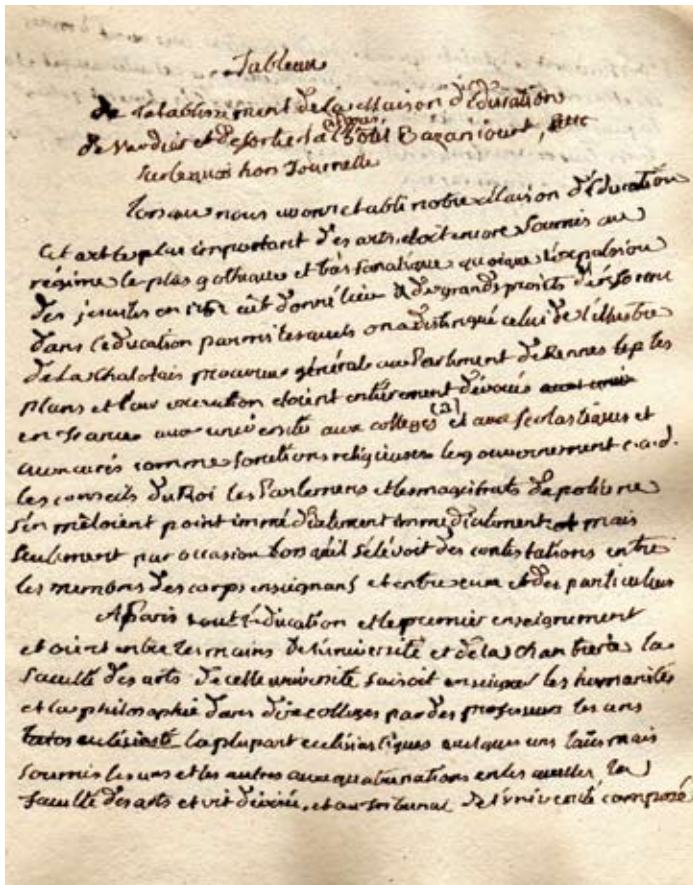 Tableau
de letablissement de la Maison d'Education
de Verdier et de fortier a l'hotel Bazancourt,
sur le quai hors Tournelle
Lorsque nous avons etabli notre Maison d'Education
Cet art le plus important des arts, etoit encore soumis au
régime le plus gothique et très fanatique quoique l'expulsion
des jesuites en eût donné lieu a de grands projets de réforme
dans l'education parmi lesquels on a distingué celui de l'illustre
de La Chalotais procureur général au Parlement de Rennes les
plans et leur execution etoient entièrement dévoués
en france aux université aux colleges (a) et aux scolastiques et
aux curés comme fonctions religieuses le gouvernement c. a. d.
les conseils du Roi les Parlemens et les magistrats de police ne
s'en mêloient point immédiatement immediatement mais
seulement par occasion lorsqu'il s'élevoit des contestations entre
les membres des corps enseignans et entre eux et des particuliers
A Paris tout l'éducation et le premier enseignement
etoient entre les mains de l'université et de la chantrerie la
faculté des arts de cette université faisoit enseigner les humanités
et la philosophie dans dix colleges par des professeurs les uns
la plupart ecclésiastiques quelques uns laïcs mais
soumis les uns et les autres aux quatre nations en lesquelles la
faculté des arts etoit divisée, et au tribunal de l'université composé